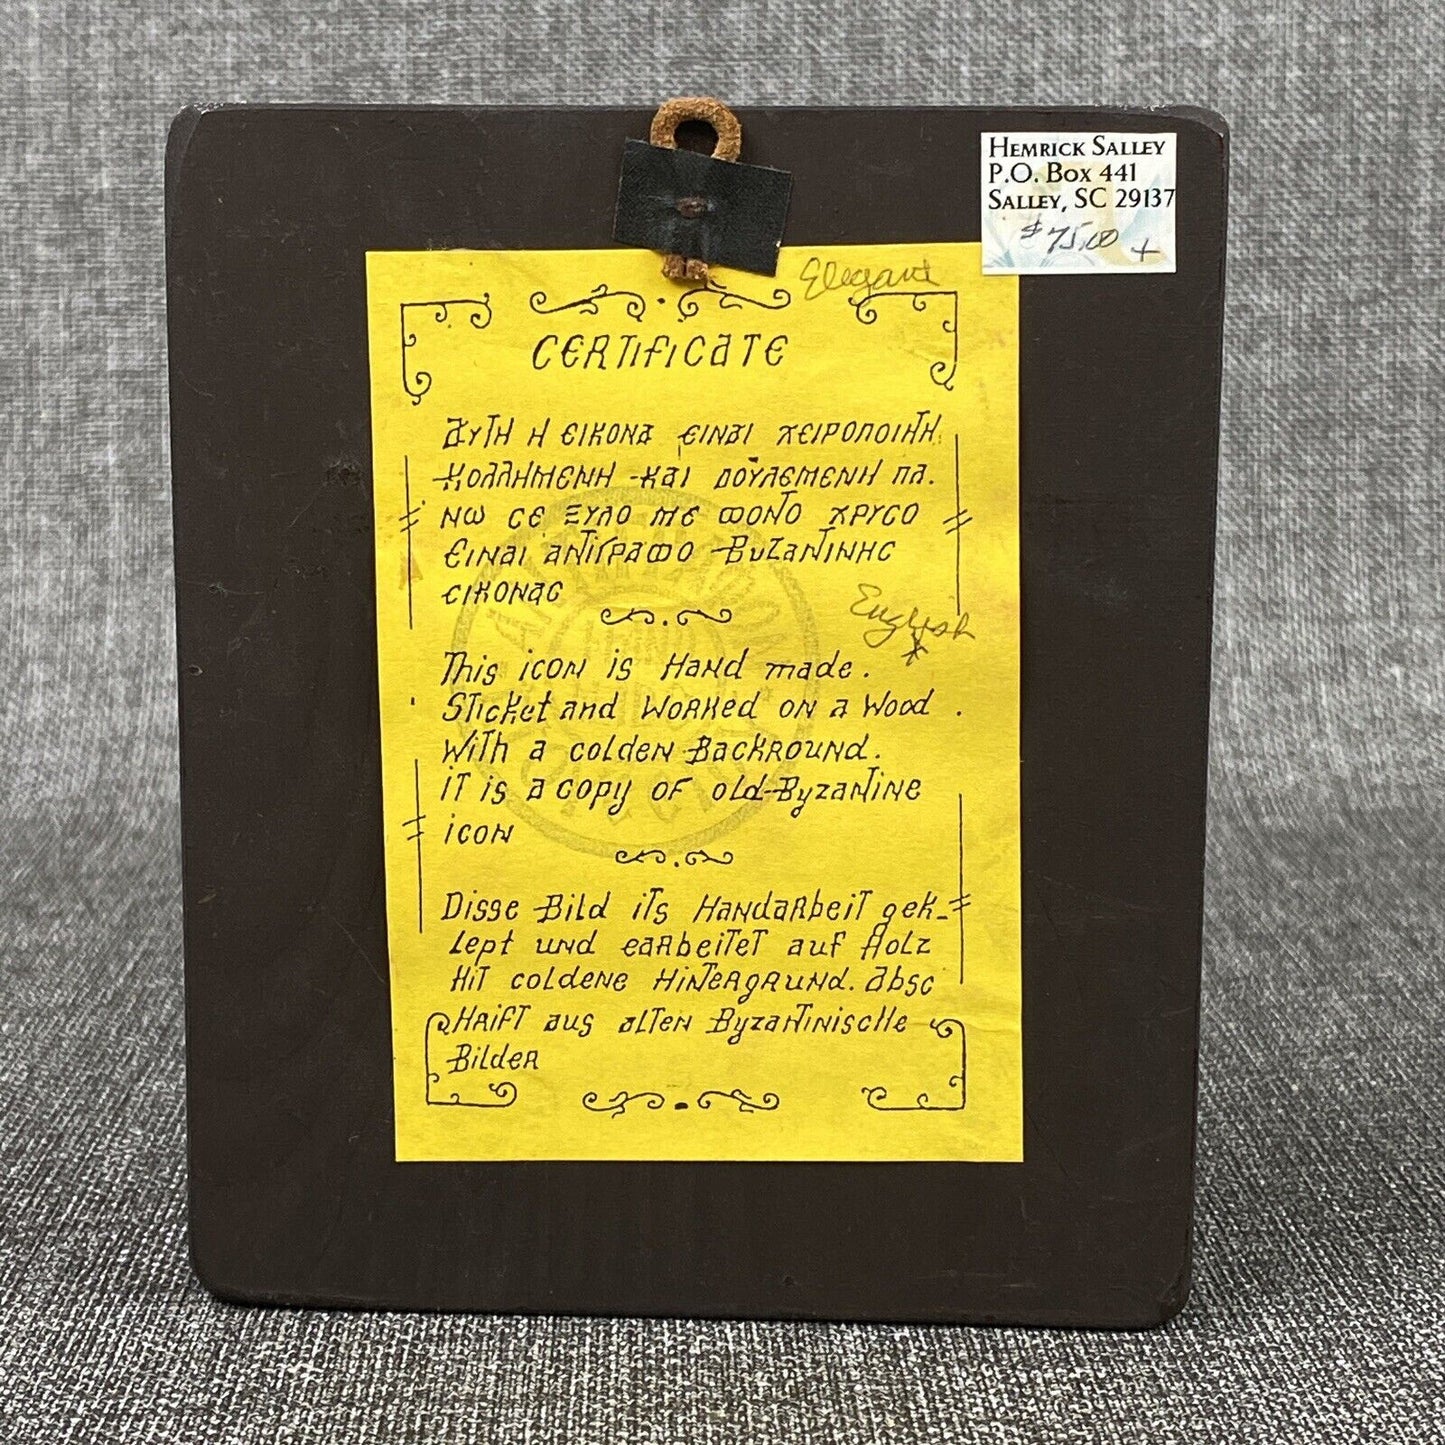 HEMRICK SALLEY
P.O. BOX 441
SALLEY, SC 29137
$75.00 +
Elegant
CERTIFICATE
ΑΥΤΗ Η ΕΙΚΟΝΑ ΕΙΝΑΙ ΧΕΙΡΟΠΟΙΗΤΗ
ΚΟΛΛΗΜΕΝΗ ΚΑΙ ΔΟΥΛΕΜΕΝΗ ΠΑ.
ΝΩ ΣΕ ΞΥΛΟ ΜΕ ΦΟΝΤΟ ΧΡΥΣΟ
ΕΙΝΑΙ ΑΝΤΙΓΡΑΦΟ ΒΥΖΑΝΤΙΝΗΣ
ΕΙΚΟΝΑΣ
English
*
This icon is Hand made.
Sticket and worked on a wood.
With a colden Backround.
iT is a copy of old-Byzantine
icon
Disse Bild its Handarbeit gek-
lept und earbeitet auf Holz
Hit coldene Hintergrund. absc
Hrift aus alten Byzantinische
Bilder